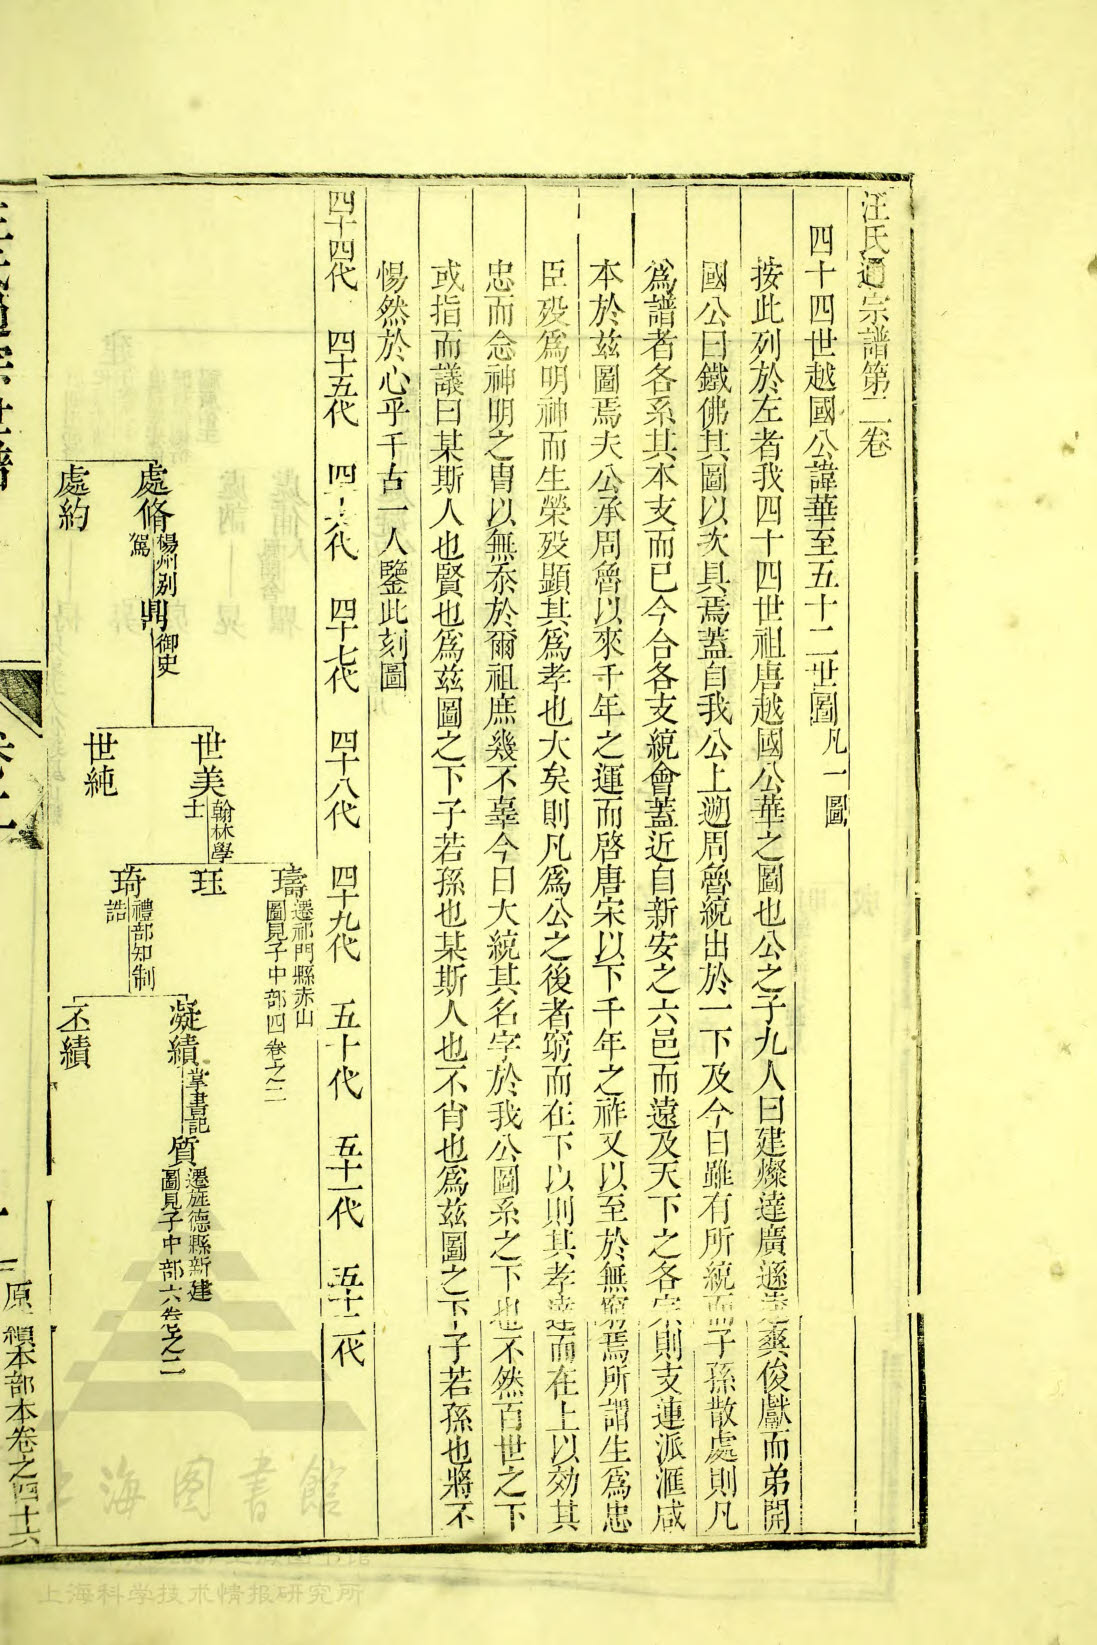 汪氏通宗譜第二卷
四十四世越國公諱華至五十二世圖凡一圖
按此列於左者我四十四世祖唐越國公華之圖也公之子九人曰建燦達廣遜逵爽俊獻而弟開
國公曰鐵佛其圖以次具焉蓋自我公上遡周魯統出於一下及今日雖有所統而子孫散處則凡
爲譜者各系其本支而已今合各支統會蓋近自新安之六邑而遠及天下之各宗則支連派滙咸
本於兹圖焉夫公承周魯以來千年之運而啓唐宋以下千年之祚又以至於無窮焉所謂生爲忠
臣歿爲明神而生榮歿顯其爲孝也大矣則凡爲公之後者窮而在下以則其孝達而在上以効其
忠而念神明之胄以無忝於爾祖庶幾不辜今日大統其名字於我公圖系之下也不然百世之下
或指而議曰某斯人也賢也爲兹圖之下子若孫也某斯人也不肖也爲兹圖之下子若孫也將不
惕然於心乎千古一人鑒此刻圖
四十四代 四十五代 四十六代 四十七代 四十八代 四十九代 五十代 五十一代 五十二代
璹遷祁門縣赤山
圖見子中部四卷之二
處脩楊州別
駕
鼎御史
世美翰林學
士
珏
凝績掌書記
質遷旌德縣新建
圖見子中部六卷之二
處約
世純
琦禮部知制
誥
丕績
汪氏通宗世譜
卷之二
原縝本部本卷之四十六
上海图書館
上海科学技术情报研究所